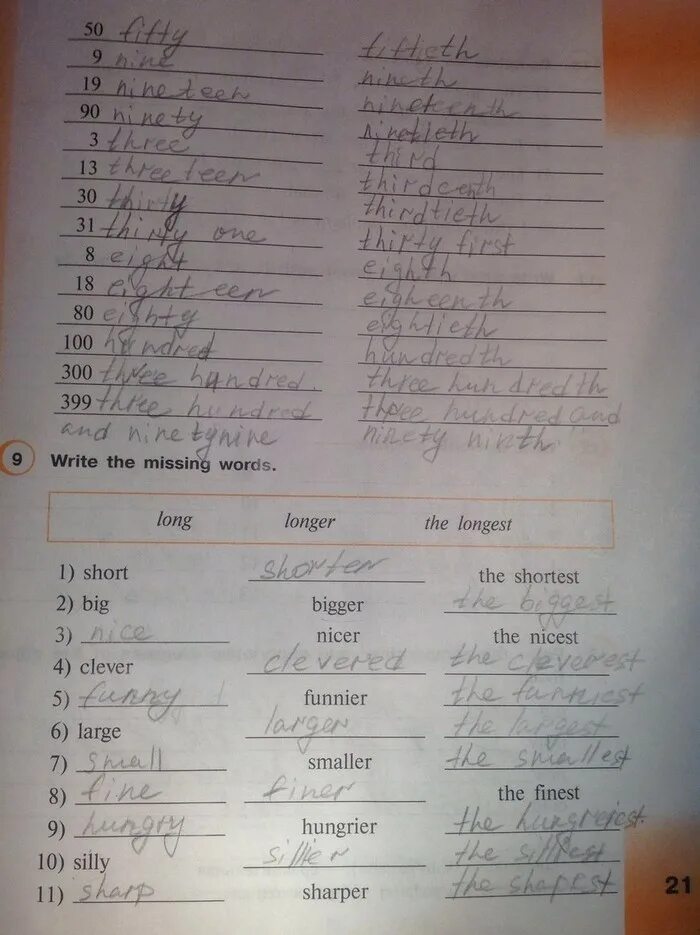 50 fifty fiftieth
9 nine nineth
19 nineteen nineteenth
90 ninety ninetieth
3 three third
13 threeteen thirdeenth
30 thirty thirdtieth
31 thirty one thirty first
8 eight eighth
18 eighteen eigheenth
80 eighty eightieth
100 hundred hundredth
300 three hundred. three hundredth
399 three hundred three hundred and
and ninetynine ninety ninth.
9 Write the missing words.
long longer the longest
1) short shorter the shortest
2) big bigger the biggest
3) nice nicer the nicest
4) clever clevered the cleverest
5) funny funnier the funniest
6) large larger the largest
7) small smaller the smallest
8) fine finer the finest
9) hungry hungrier the hungrieiest.
10) silly sillier the silliest
11) sharp sharper the shapest
21